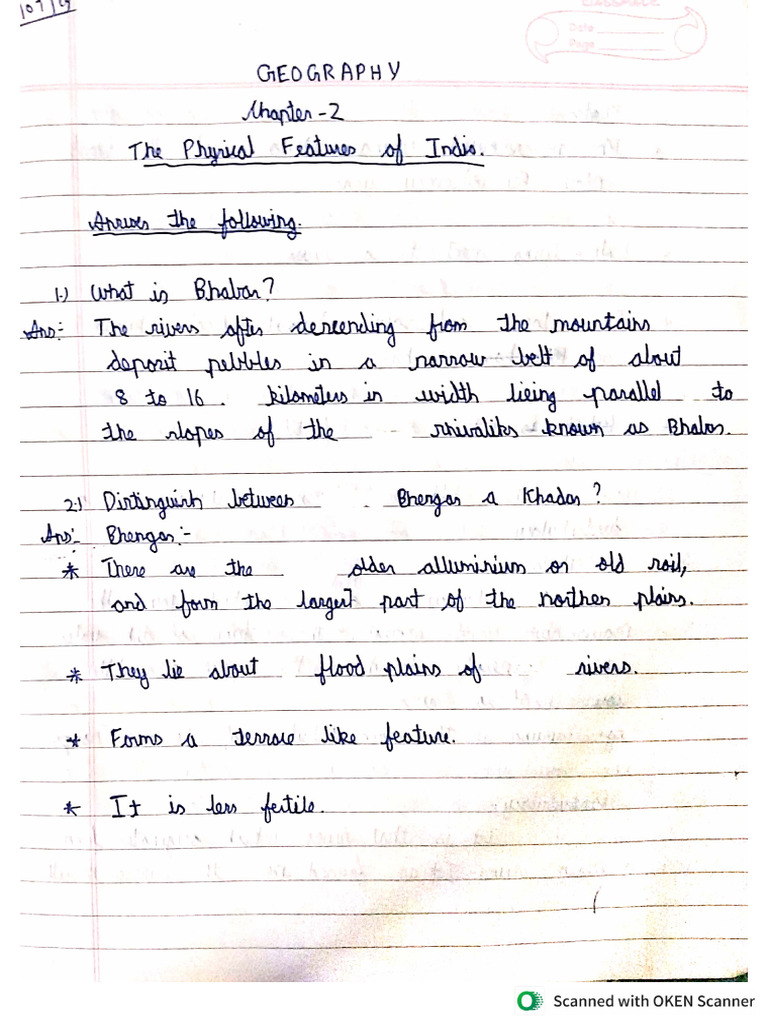 GEOGRAPHY
Chapter-2
The Physical Features of India.
Answer the following.
1.) What is Bhabar?
Ans:- The rivers after descending from the mountains
deposit pebbles in a narrow belt of about
8 to 16. kilometers in width lieing parallel to
the slopes of the shivaliks known as Bhabar.
2.) Distinguish between Bhengar & Khadar?
Ans:- Bhengar:-
* There are the older alluminium or old soil,
and form the largest part of the northen plains.
* They lie about flood plains of rivers.
* Forms a terrace like feature.
* It is less fertile.
Scanned with OKEN Scanner